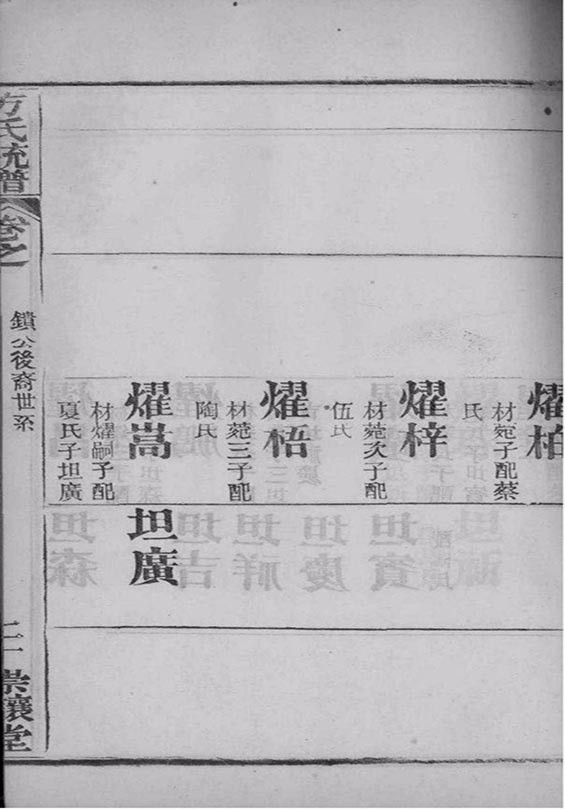 燿柏
材菀子配蔡
氏
燿梓
材菀次子配
伍氏
燿梧
材菀三子配
陶氏
燿嵩
材燿嗣子配
夏氏子坦廣
坦廣
方氏統譜
卷之
鎖公後裔世系
崇讓堂